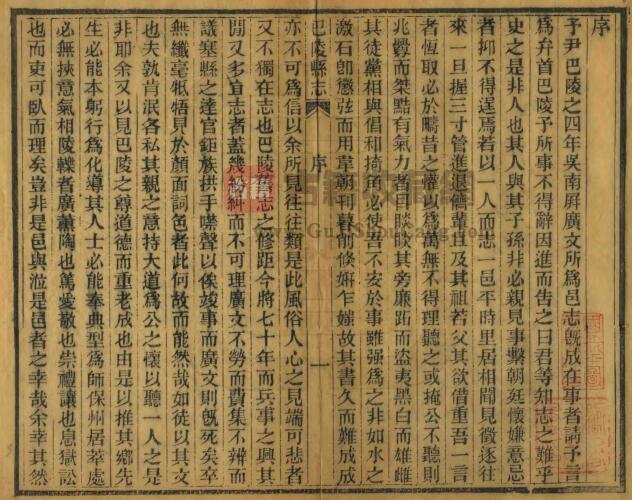 序
予尹巴陵之四年吳南屏廣文所爲邑志既成在事者請予言
爲弁首巴陵予所事不得辭因進而告之曰君等知志之難乎
史之是非人也其人與其子孫非必親見事繫朝廷懷嫌意忌
者抑不得逞焉若以一人而志一邑平時里居相聞見徵逐往
來一旦握三寸管進退儕輩且及其祖若父其欲借重吾一言
者恆取必於疇昔之懽以爲萬無不得理聽之或掩公不聽則
兆釁而桀黠有氣力者日睒睒其旁廉跖而盜夷黑白而雄雌
其徒黨相與倡和掎角必使吾不安於事雖强爲之非如水之
激石卽懲弦而用韋朝刊暮削倏妍乍媸故其書久而難成成
巴陵縣志
序
一
亦不可爲信以余所見往往類是此風俗人心之見端可悲者
又不獨在志也巴陵舊志之修距今將七十年而兵事之興其
閒又多宜志者蓋幾紛糾而不可理廣文不勞而費集不辨而
議塞縣之達官鉅族拱手噤聲以俟竣事而廣文則旣死矣卒
無纖毫牴牾見於顏面詞色者此何故而能然哉如徒以其文
也夫孰肯泯各私其親之意持大道爲公之懷以聽一人之是
非耶余又以見巴陵之尊道德而重老成也由是以推其鄉先
生必能本躬行爲化導其人士必能奉典型爲師保州居萃處
必無挾意氣相陵轢者廣薰陶也篤愛敬也崇禮讓也息獄訟
也而吏可臥而理矣豈非是邑與涖是邑者之幸哉余幸其然